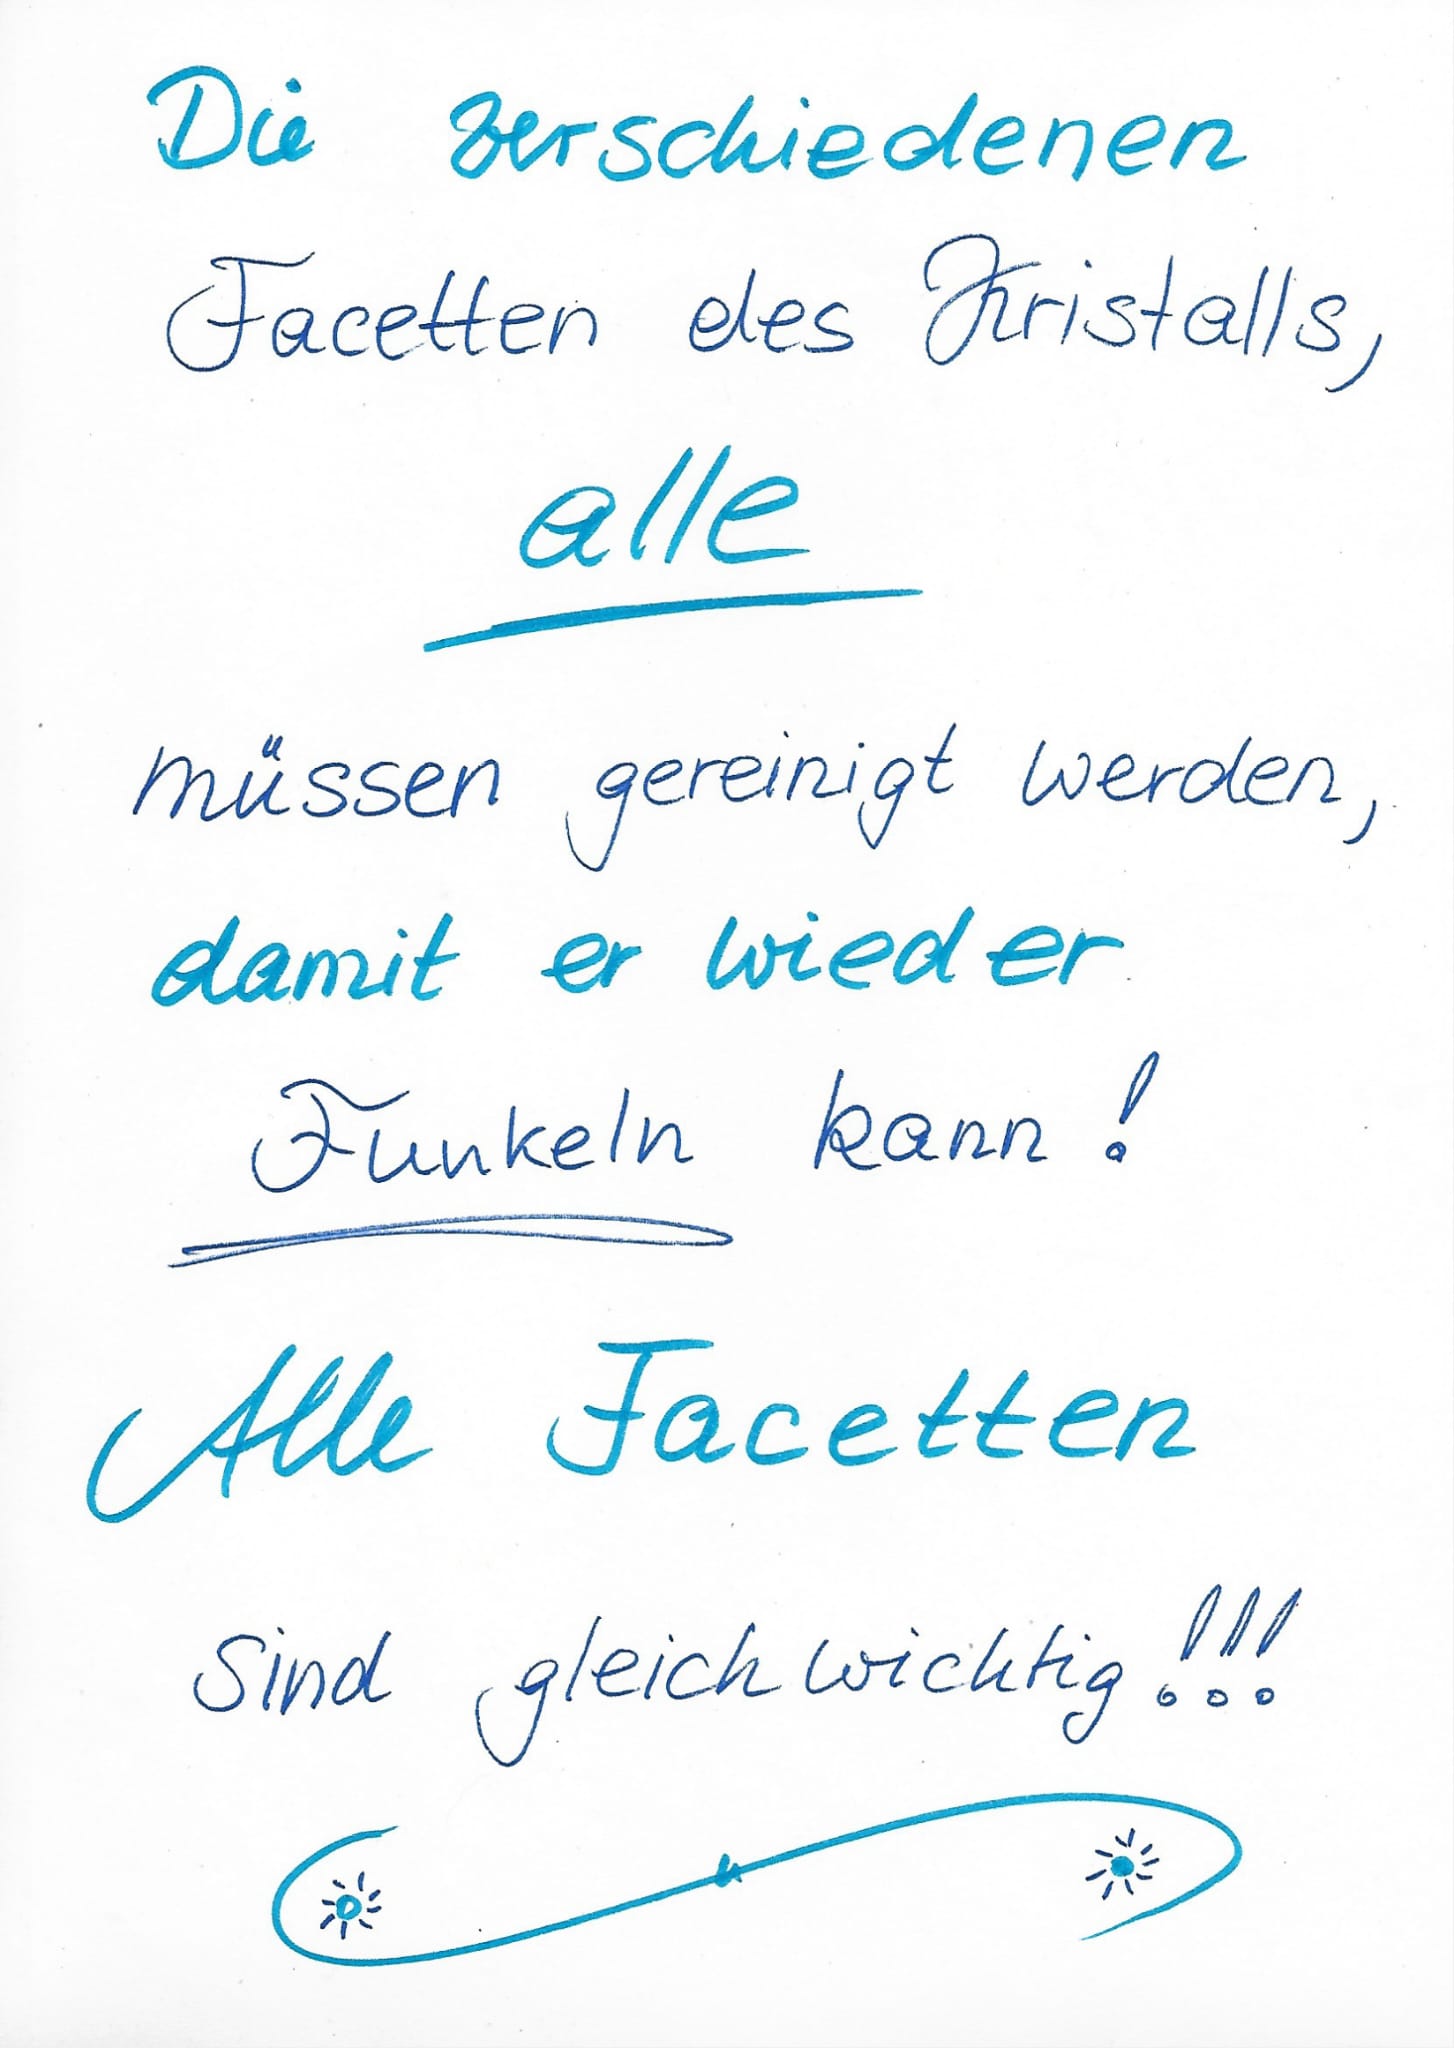 Die verschiedenen
Facetten des Kristalls,
alle
müssen gereinigt werden,
damit er wieder
Funkeln kann!
Alle Facetten
sind gleich wichtig!!!